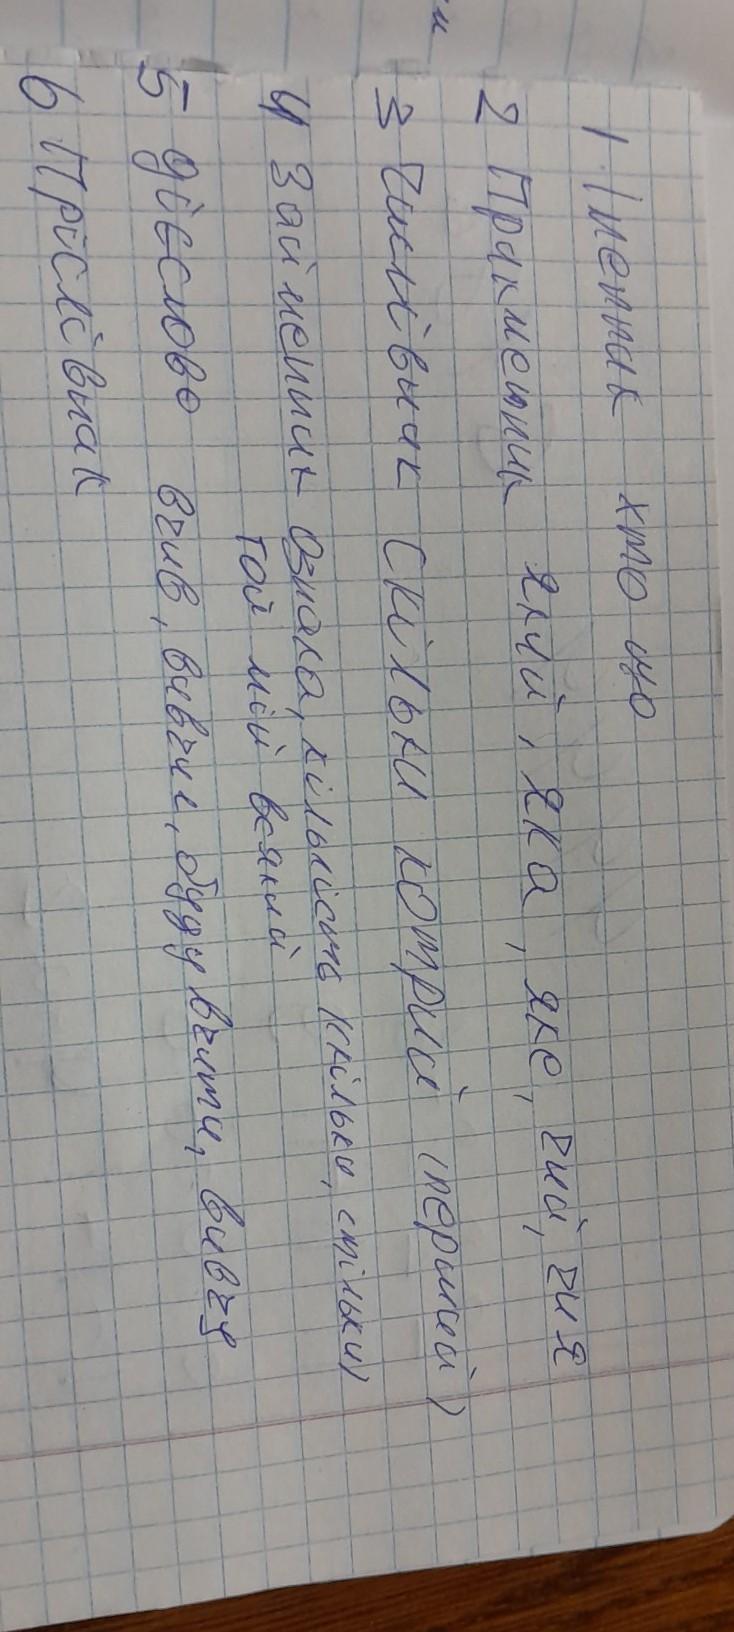 1. Іменник хто що
2 Прикметник який, яка, яке, чий, чия
3 Числівник скільки котрий (перший)
4 Займенник ознака, кількість кільки, стільки)
той мій всякий
5 дієслово вчив, вивчив, буду вчити, вивчу
6 Прислівник